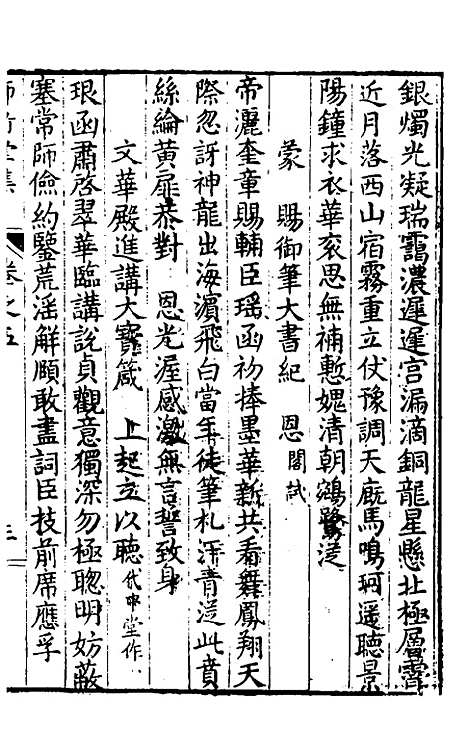 銀燭光凝瑞靄濃遲遲宮漏滴銅龍星懸北極層霄
近月落西山宿霧重立仗豫調天廐馬鳴珂遥聽景
陽鐘求衣華衮思無補慙媿清朝鵷鷺逰
蒙　賜御筆大書紀　恩閣試
帝灑奎章賜輔臣瑶函初捧墨華新共看舞鳳翔天
際忽訝神龍出海濱飛白當年徒筆札汗青從此賁
絲綸黄扉恭對　恩光渥感激無言誓致身
文華殿進講大寳箴　上起立以聽代中堂作
琅函肅啓翠華臨講説貞觀意獨深勿極聰明妨蔽
塞常師儉約鑒荒淫解頤敢盡詞臣技前席應孚
卷之五
三